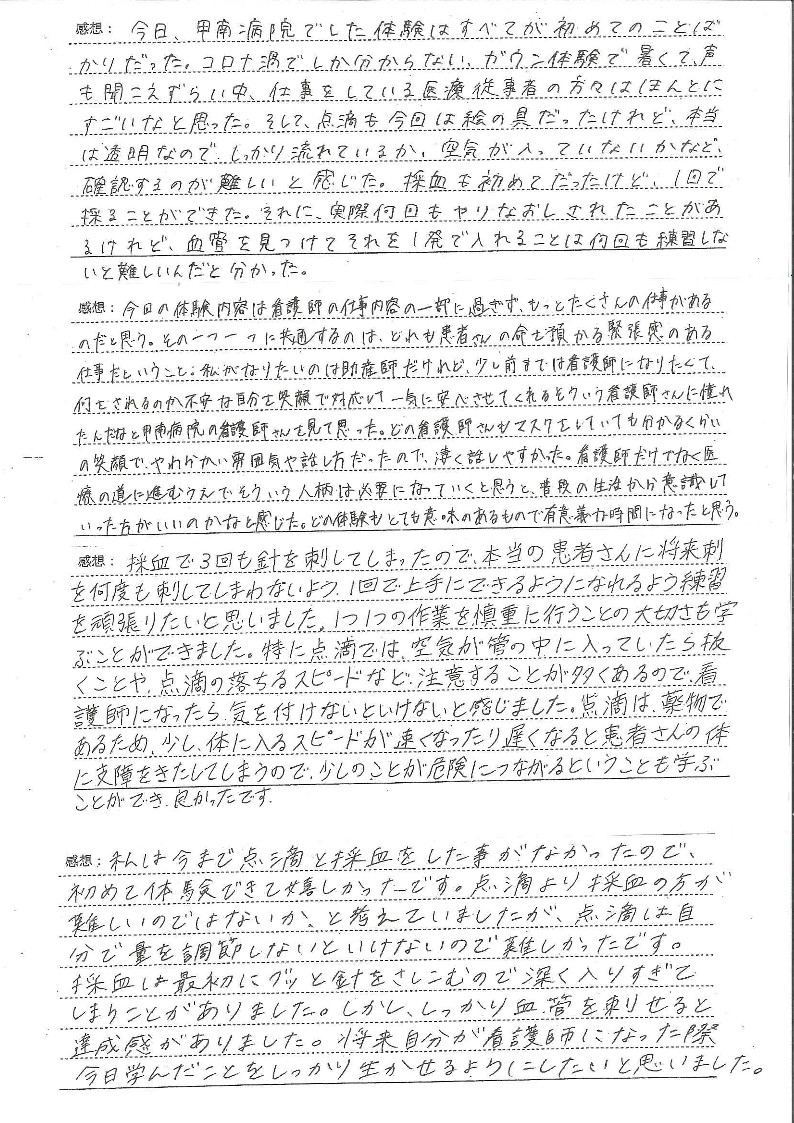 感想：今日、甲南病院でした体験はすべてが初めてのことば
かりだった。コロナ渦でしか分からない、ガウン体験で暑くて、声
も聞こえずらい中、仕事をしている医療従事者の方々はほんとに
すごいなと思った。そして、点滴も今回は絵の具だったけれど、本当
は透明なので、しっかり流れているか、空気が入っていないかなど、
確認するのが難しいと感じた。採血も初めてだったけど、1回で
採ることができた。それに、実際何回もやりなおしされたことがあ
るけれど、血管を見つけてそれを1発で入れることは何回も練習しな
いと難しいんだと分かった。
感想：今日の体験内容は看護師の仕事内容の一部に過ぎず、もっとたくさんの仕事がある
のだと思う。その一つ一つに共通するのは、どれも患者さんの命を預かる緊張感のある
仕事だということ。私がなりたいのは助産師だけれど、少し前までは看護師になりたくて、
何をされるのか不安な自分を笑顔で対応して一気に安心させてくれるそういう看護師さんに憧れ
たんだなと甲南病院の看護師さんを見て思った。どの看護師さんもマスクをしていても分かるくらい
の笑顔で、やわらかい雰囲気や話し方だったので、凄く話しやすかった。看護師だけでなく医
療の道に進むうえでそういう人柄は必要になっていくと思うと、普段の生活から意識して
いった方がいいのかなと感じた。どの体験もとても意味のあるもので有意義な時間になったと思う。
感想：採血で3回も針を刺してしまったので、本当の患者さんに将来刺
を何度も刺してしまわないよう、1回で上手にできるようになれるよう練習
を頑張りたいと思いました。1つ1つの作業を慎重に行うことの大切さも学
ぶことができました。特に点滴では、空気が管の中に入っていたら抜
くことや、点滴の落ちるスピードなど、注意することが多くあるので、看
護師になったら気を付けないといけないと感じました。点滴は、薬物で
あるため、少し、体に入るスピードが速くなったり遅くなると患者さんの体
に支障をきたしてしまうので、少しのことが危険につながるということも学ぶ
ことができ、良かったです。
感想：私は今まで点滴と採血をした事がなかったので、
初めて体験できて嬉しかったです。点滴より採血の方が
難しいのではないか、と考えていましたが、点滴は自
分で量を調節しないといけないので難しかったです。
採血は最初にグッと針をさしこむので深く入りすぎて
しまうことがありました。しかし、しっかり血管を刺せると
達成感がありました。将来自分が看護師になった際
今日学んだことをしっかり生かせるようにしたいと思いました。